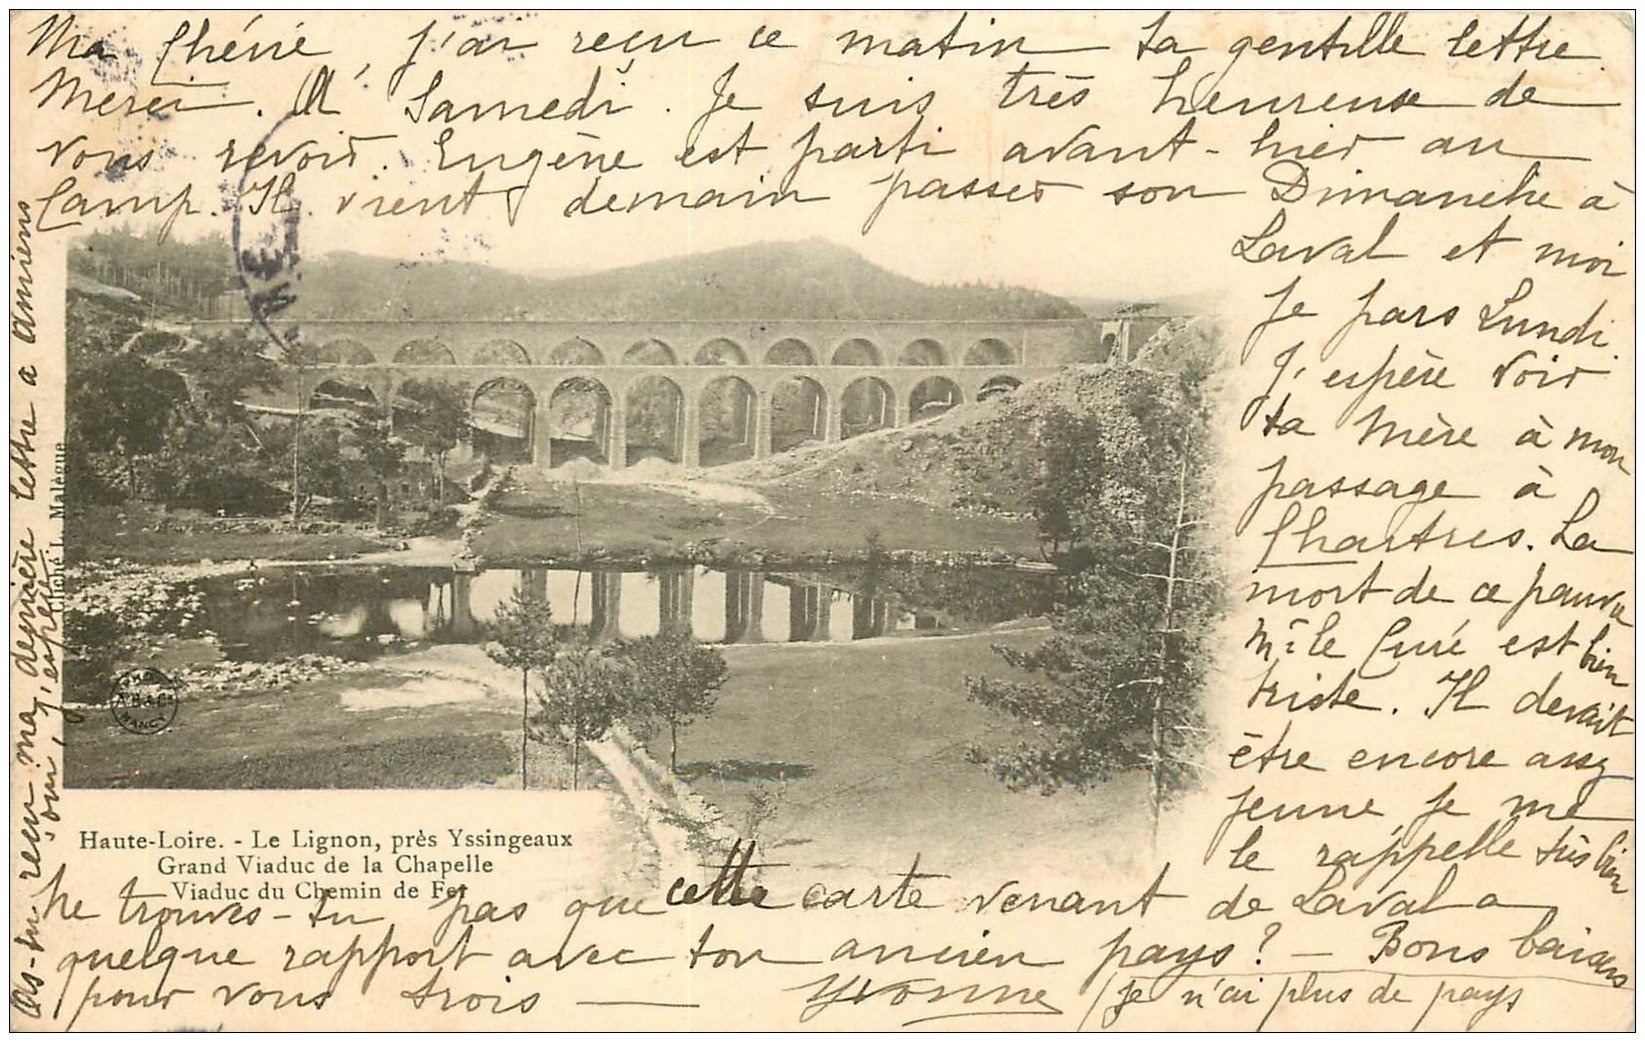 Ma Chérie, j'ai reçu ce matin ta gentille lettre.
Merci. A Samedi. Je suis très heureuse de
vous revoir. Eugène est parti avant-hier au
Camp. Il vient demain passer son Dimanche à
Laval et moi
je pars Lundi.
J'espère voir
ta Mère à mon
passage à
Chartres. La
mort de ce pauvre
Mr le Curé est bien
triste. Il devait
être encore assez
jeune je me
le rappelle très bien
Ne trouves-tu pas que cette carte venant de Laval a
quelque rapport avec ton ancien pays? - Bons baisers
pour vous trois — Yvonne (je n'ai plus de pays
As-tu reçu ma dernière lettre à Amiens
oui, j'espère
Cliché L. Malègue
Haute-Loire. - Le Lignon, près Yssingeaux
Grand Viaduc de la Chapelle
Viaduc du Chemin de Fer
NANCY